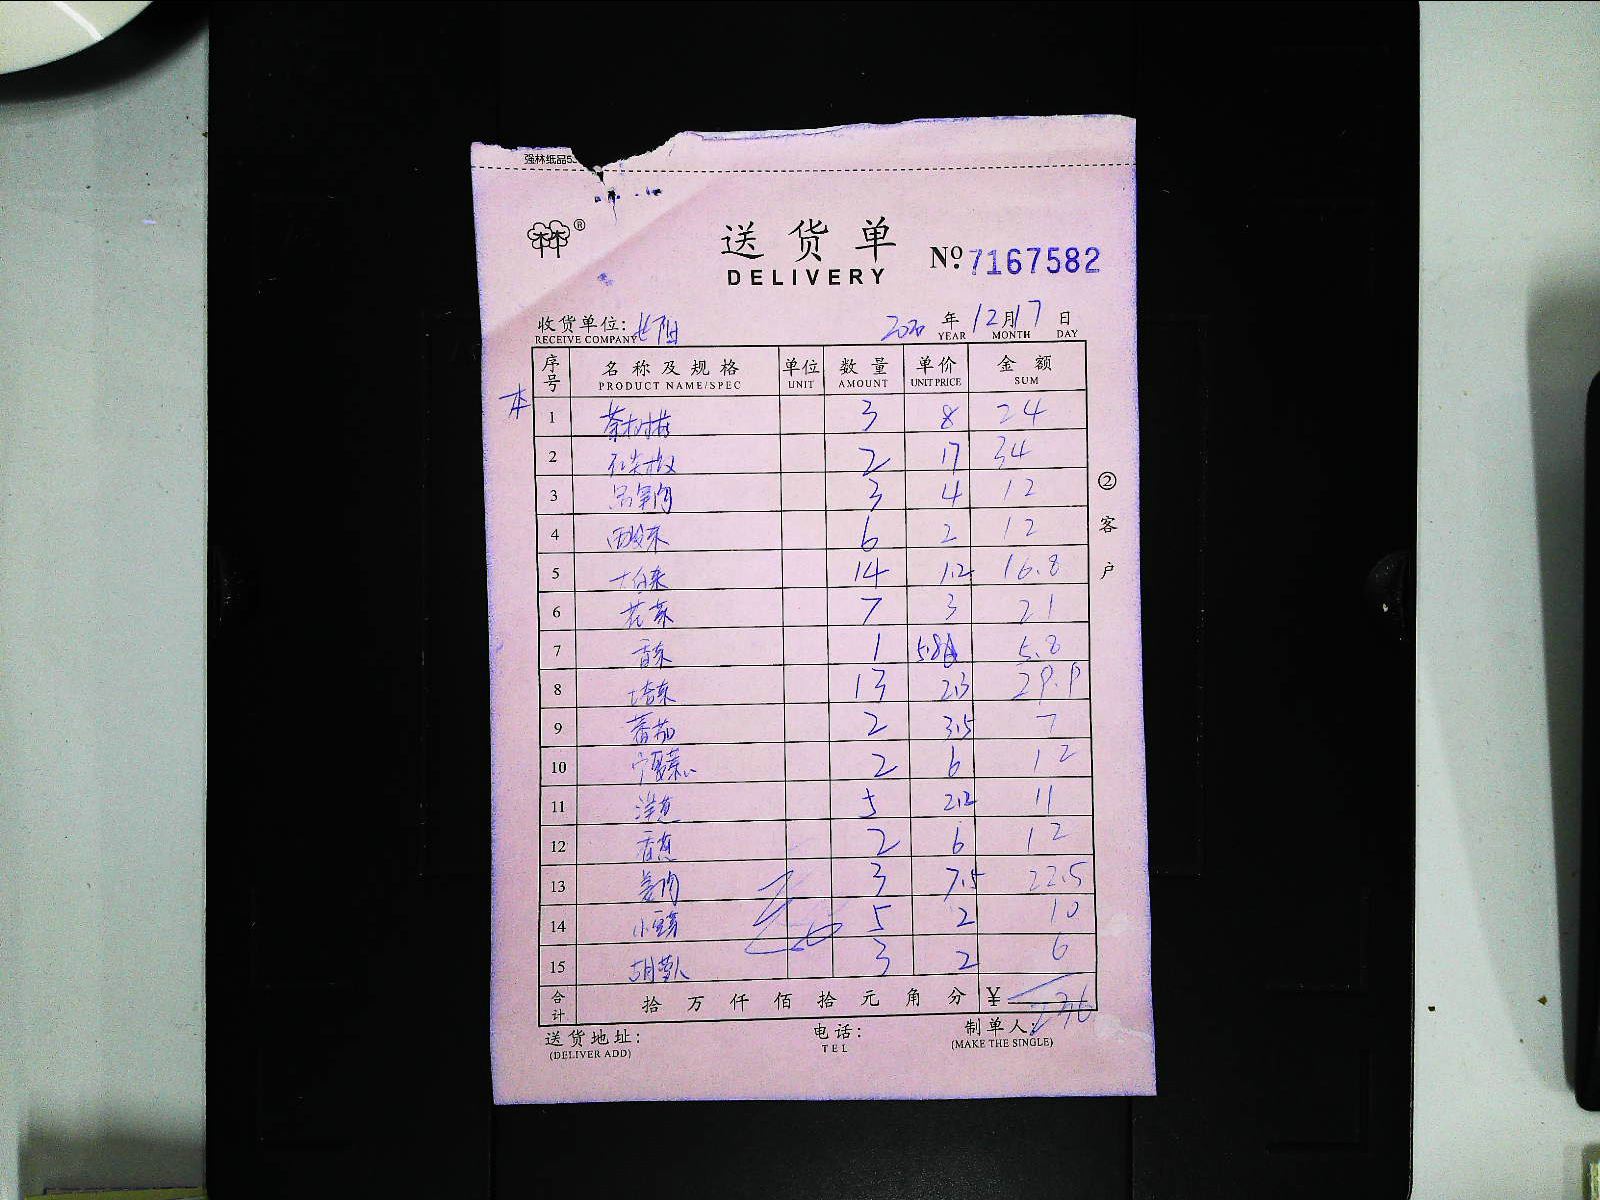 强林纸品
®
送货单
DELIVERY
Nº 7167582
收货单位:
RECEIVE COMPANY
2020 年 12 月 17 日
YEAR MONTH DAY
序号 名称及规格 单位 数量 单价 金额
PRODUCT NAME/SPEC UNIT AMOUNT UNIT PRICE SUM
本
1 茶树菇 3 8 24
2 2 17 34
3 3 4 12
4 6 2 12
5 大白菜 14 1.2 16.8
6 花菜 7 3 21
7 香菜 1 5.8 5.8
8 13 2.3 29.9
9 蕃茄 2 3.5 7
10 宁夏菜心 2 6 12
11 洋葱 5 2.2 11
12 香葱 2 6 12
13 姜肉 3 7.5 22.5
14 小豆芽 5 2 10
15 胡萝卜 3 2 6
合计 拾 万 仟 佰 拾 元 角 分 ¥ 236
②客户
送货地址: 电话: 制单人:
(DELIVER ADD) TEL (MAKE THE SINGLE)